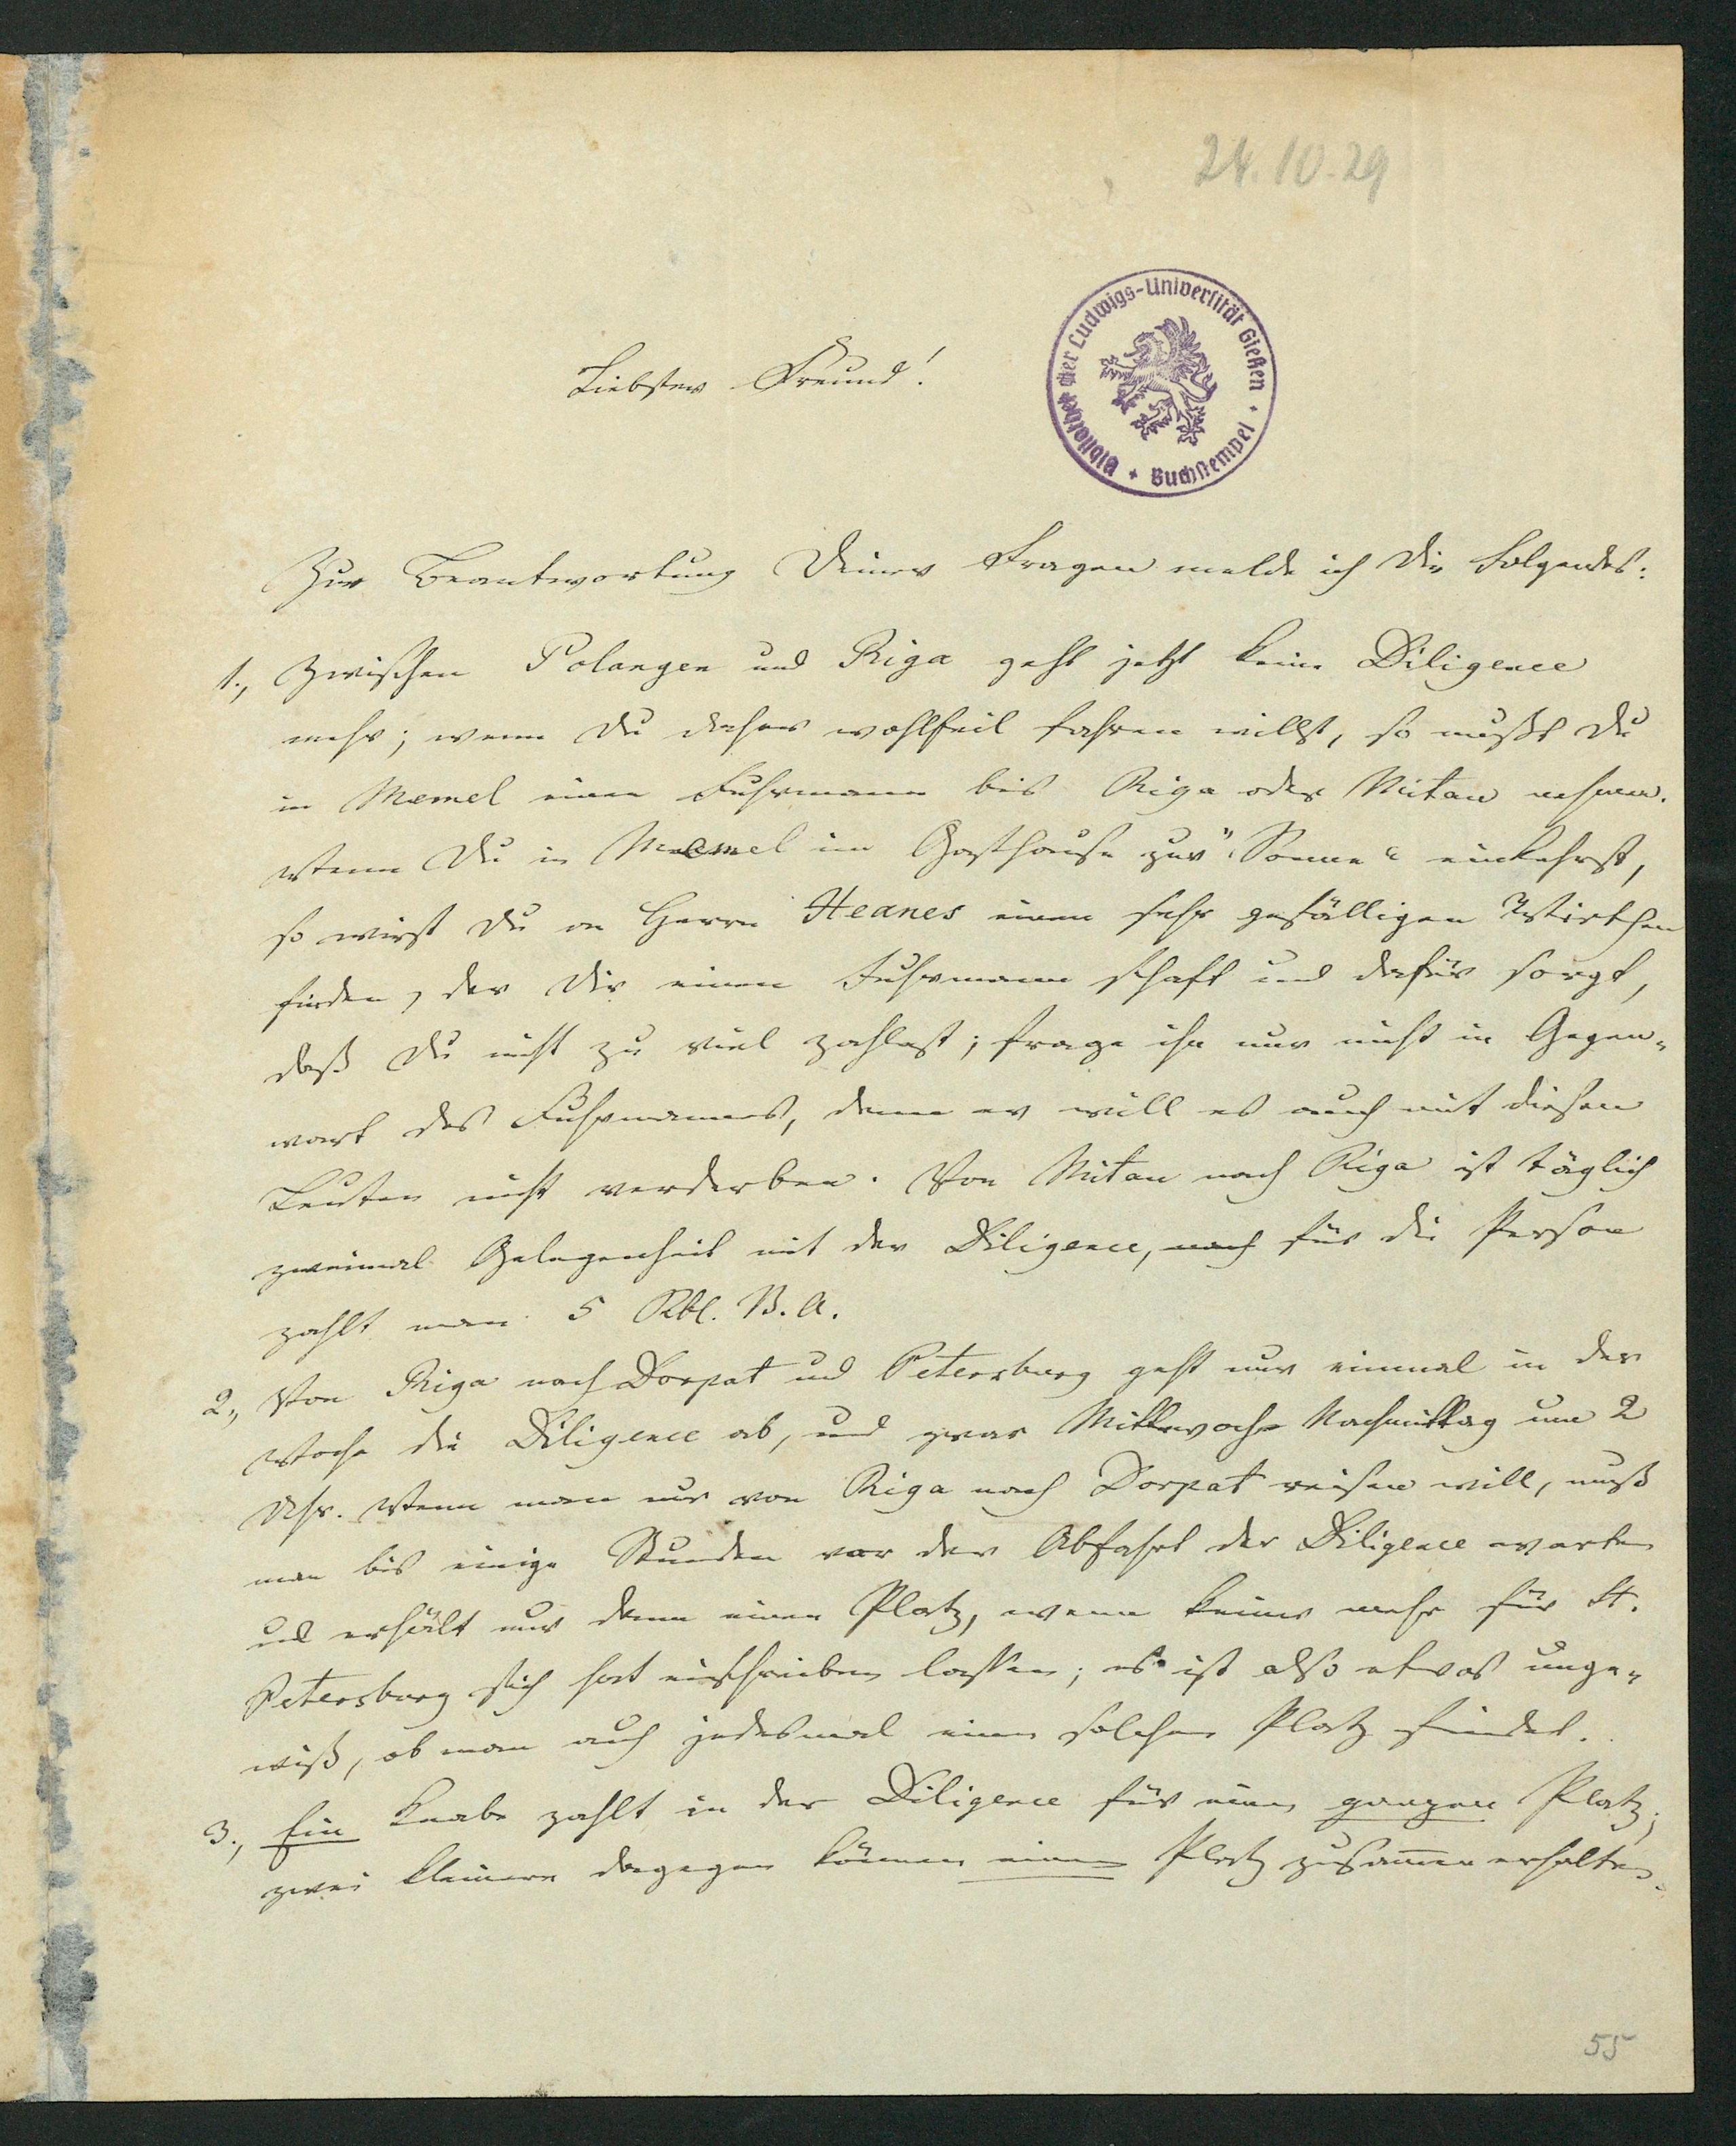 24.10.29
Bibliothek der Ludwigs-Universität Gießen + Buchstempel +
Liebster Freund!
Zur Beantwortung Deiner Fragen melde ich Dir Folgendes:
1., Zwischen Polangen und Riga geht jetzt keine Diligence
mehr; wenn Du daher wohlfeil fahren willst, so mußt Du
in Memel einen Fuhrmann bis Riga oder Mitau nehmen.
Wenn Du in Memel im Gasthause zur "Sonne" einkehrst,
so wirst Du an Herrn Heanes einen sehr gefälligen Wirthen
finden, der Dir einen Fuhrmann schaft und dafür sorgt,
daß Du nicht zu viel zahlest; frage ihn nur nicht in Gegen-
wart des Fuhrmanns, denn er will es auch mit diesen
Leuten nicht verderben. Von Mitau nach Riga ist täglich
zweimal Gelegenheit mit der Diligence, für die Person
zahlt man 5 Rbl. B. A.
2., Von Riga nach Dorpat und Petersburg geht nur einmal in der
Woche die Diligence ab, und zwar Mittwochs Nachmittag um 2
Uhr. Wenn man nur von Riga nach Dorpat reisen will, muß
man bis einige Stunden vor der Abfahrt der Diligence warten
und erhält nur dann einen Platz, wenn keiner mehr für St.
Petersburg sich hat einschreiben lassen; es ist also etwas unge-
wiß, ob man auch jedesmal einen solchen Platz findet.
3., Ein Knabe zahlt in der Diligence für einen ganzen Platz;
zwei kleinere dagegen können einen Platz zusammen erhalten.
55